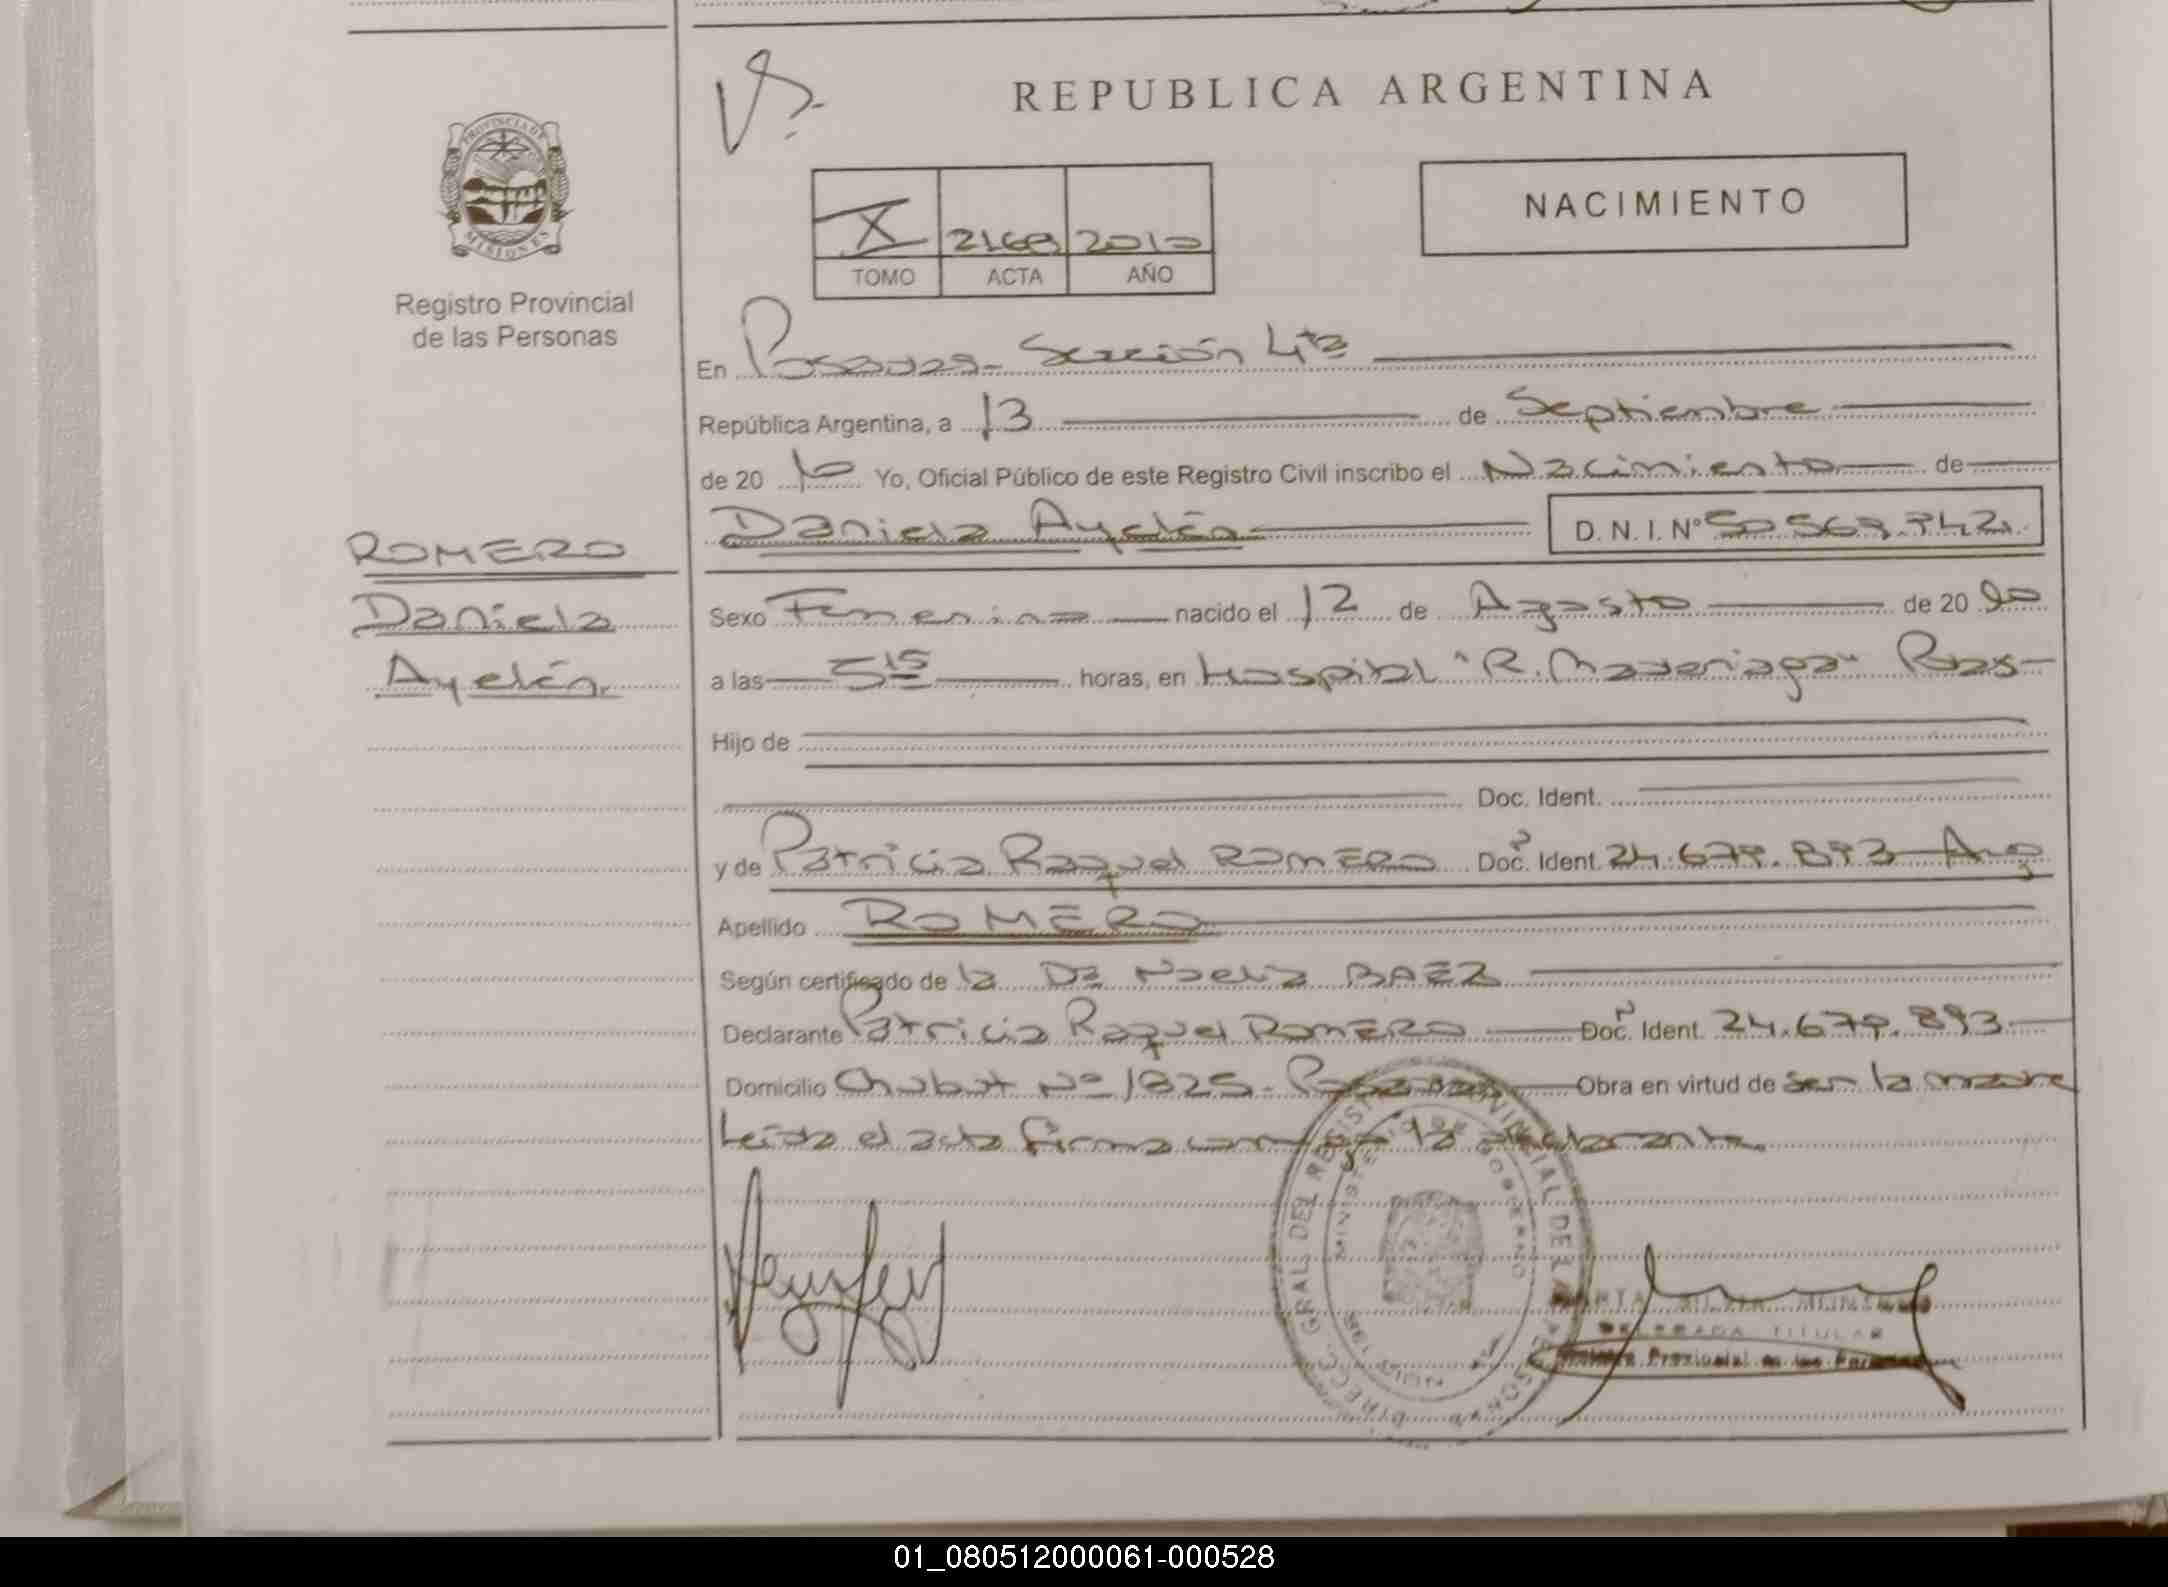 REPUBLICA ARGENTINA
PROVINCIA DE
MISIONES
Registro Provincial
de las Personas
X 2168 2010
TOMO ACTA AÑO
NACIMIENTO
En Posadas - Sección 4ta
República Argentina, a 13 de Septiembre
de 20 10 Yo, Oficial Público de este Registro Civil inscribo el Nacimiento de
Daniela Ayelén D. N. I. Nº
ROMERO
Daniela
Ayelén
Sexo Femenino nacido el 12 de Agosto de 20
a las 5 15 horas, en Hospital "R. Madariaga" Pdas
Hijo de
Doc. Ident.
y de Patricia Raquel ROMERO Doc. Ident. 24.679.893 Arg
Apellido ROMERO
Según certificado de la Dra Noelia BAEZ
Declarante Patricia Raquel ROMERO Doc. Ident. 24.679.893
Domicilio Chubut Nº 1825 - Posadas Obra en virtud de ser la madre
Leída el acta firma conmigo la declarante.
DIRECC. GRAL. DEL REGIST. PROVINCIAL DE LAS PERSONAS
MINISTERIO DE GOBIERNO
DELEGADA TITULAR
01_080512000061-000528